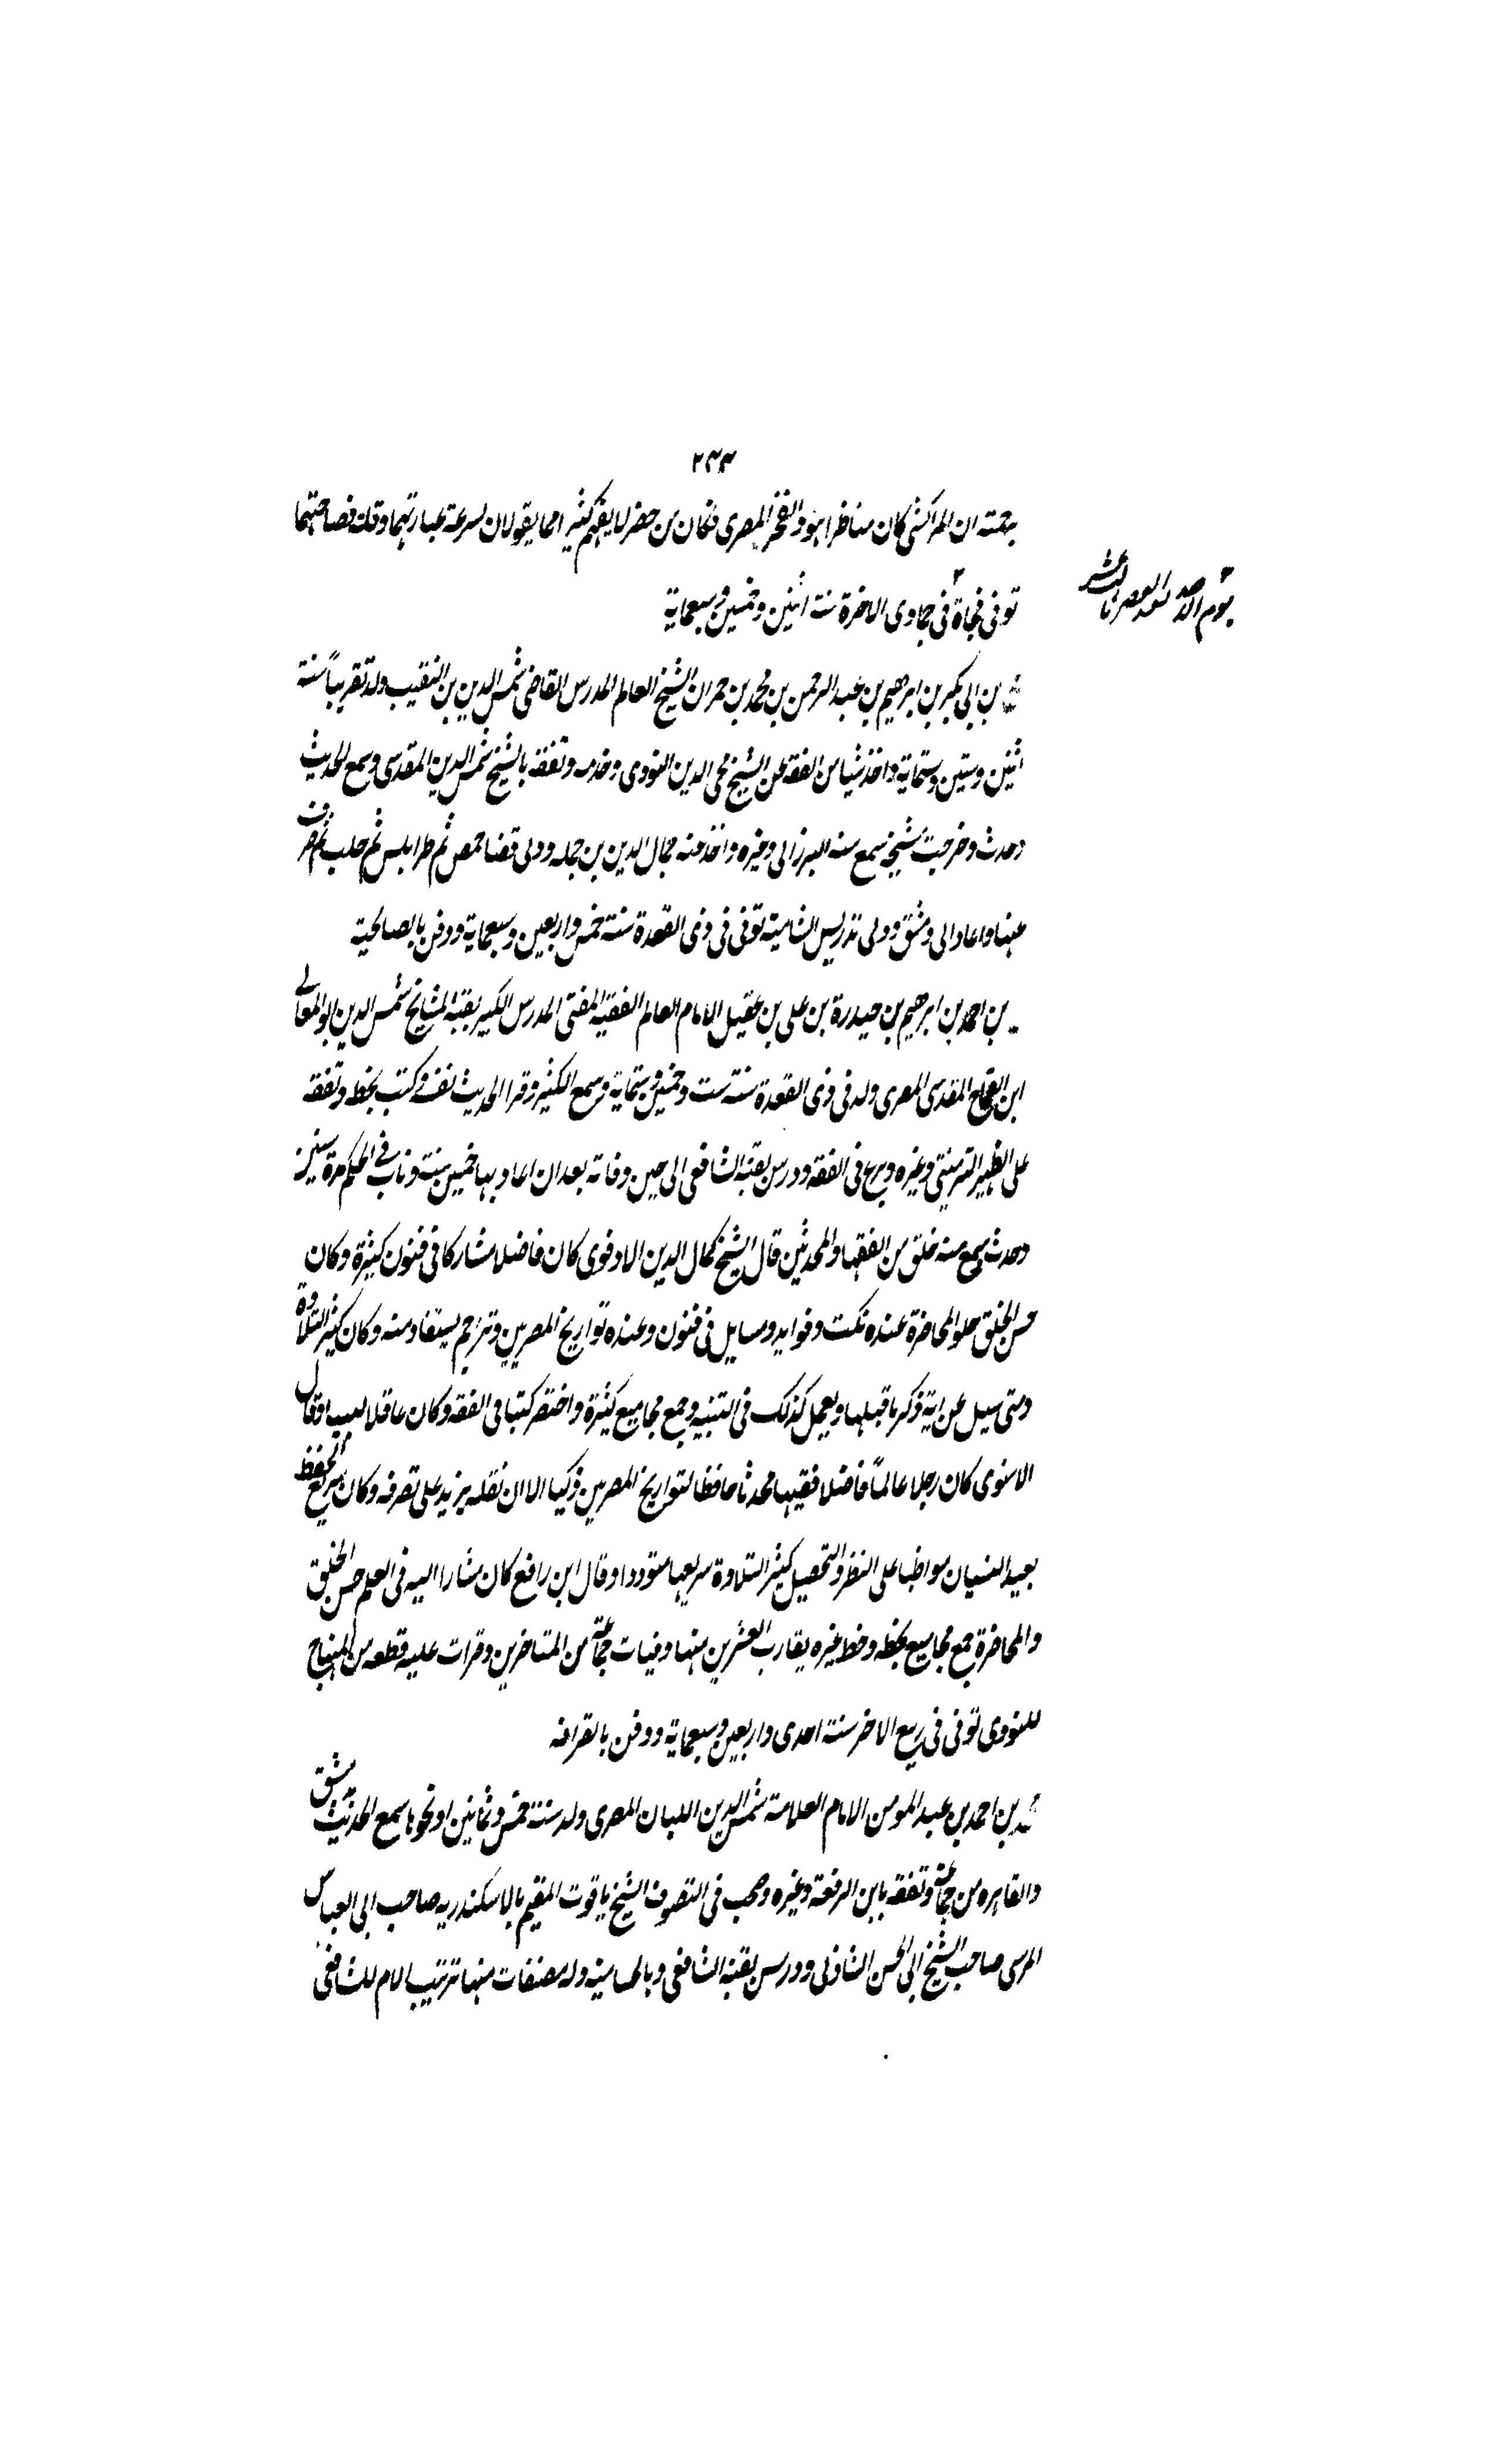 ٢٣٣
ترجمته ان المراكشي كان مناظرا هو والفخر المصري فكان من حضر لا يفهم كثيرا مما يقولان لسرعة عبارتهما وقلة فصاحتهما
توفي فجاة في جمادى الاخرة سنة اثنين وخمسين وسبعماية
يوم الاحد بعد العصر ثالث عشر
بن ابي بكر بن ابراهيم بن عبد الرحمن بن محمد بن حمران الشيخ العالم المدرس القاضي شمس الدين بن النقيب ولد تقريباً سنة
اثنين وستين وستماية واخذ شيا من الفقه عن الشيخ محي الدين النووي وخدمه وتفقه بالشيخ شمس الدين المقدسي وسمع الحديث
وحدث وخرجت مشيخة سمع منه البرزالي وغيره واخذ عنه جمال الدين بن جمله وولى قضا حمص ثم طرابلس ثم حلب ثم صرف
عنها وعاد الى دمشق وولى تدريس الشامية توفي في ذي القعدة سنة خمس واربعين وسبعماية ودفن بالصالحية
بن احمد بن ابراهيم بن حيدرة بن علي بن عقيل الامام العالم الفقيه المفتي المدرس الكبير بقية المشايخ شمس الدين ابو المعالي
ابن القماح المقدسي المصري ولد في ذي القعدة سنة ست وخمسين وستماية وسمع الكثير وقرا الحديث بنفسه وكتب بخطه وتفقه
على الظهير التزمنتي وغيره وبرع في الفقه ودرس بقبة الشافعي الى حين وفاته بعد ان اعاد بها خمسين سنة وناب في الحكم مرة سنين
وحدث سمع منه خلق من الفقها والمحدثين قال الشيخ كمال الدين الادفوي كان فاضلا مشاركا في فنون كثيرة وكان
حسن الخلق حلو المحاضرة عنده نكت وفوايد ومسايل في فنون وعنده تواريخ المصريين وتراجم يستفاد منه وكان كثير التلاوة
ومتى سيل عن اية ذكر ما قبلها ويعمل كذلك في التنبيه وجمع مجاميع كثيرة واختصر كتبا في الفقه وكان عاقلا لبيبا وقال
الاسنوي كان رجلا عالماً فاضلا فقيها محدثا حافظا لتواريخ المصريين ذكيا الا ان نقله يزيد على تصرفه وكان سريع الحفظ
بعيد النسيان مواظبا على النظر والتحصيل كثير التلاوة سريعها متوددا وقال ابن رافع كان مشارا اليه في العلم حسن الخلق
والمحاضرة جمع مجاميع بخطه وخط غيره يقارب العشرين منها وفيات جماعة من المتاخرين وقرات عليه قطعه من المنهاج
للنووي توفي في ربيع الاخر سنة احدى واربعين وسبعماية ودفن بالقرافه
بن احمد بن عبد المومن الامام العلامة شمس الدين اللبان المصري ولد سنة خمس وثمانين او نحوها سمع الحديث بدمشق
والقاهره من جماعة وتفقه بابن الرفعة وغيره وصحب في التصوف الشيخ ياقوت المقيم بالاسكندريه صاحب ابي العباس
المرسي صاحب الشيخ ابي الحسن الشاذلي ودرس بقبة الشافعي وله مصنفات منها ترتيب الام للشافعي